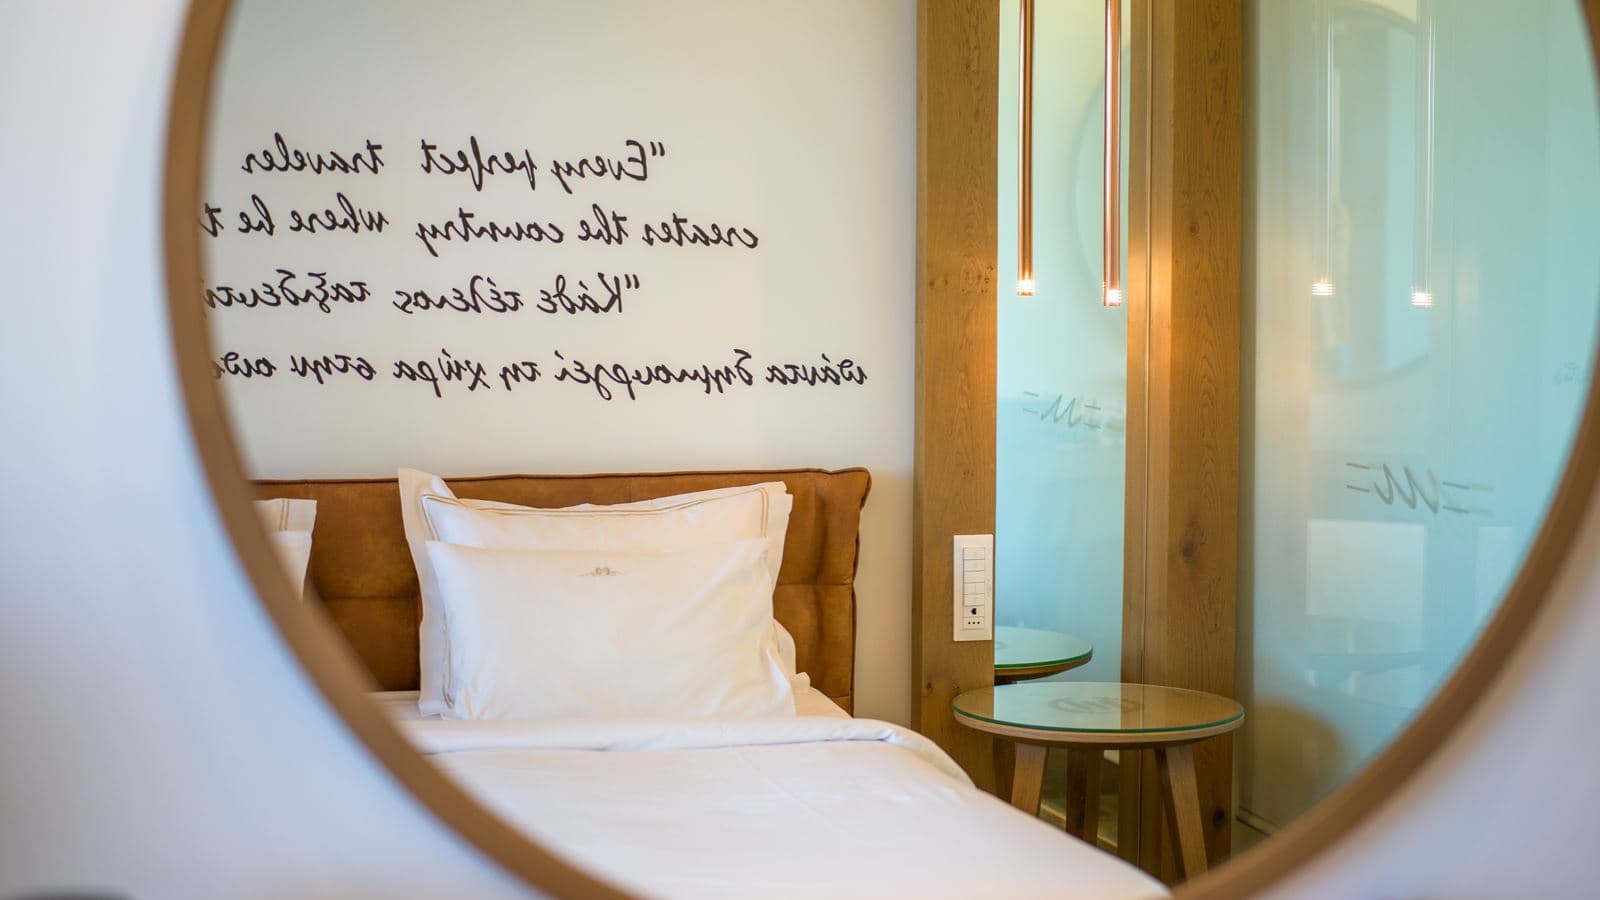 “Every perfect traveler
creates the country where he t
“Κάθε τέλειος ταξιδευτή
πάντα δημιουργεί τη χώρα στην οπο